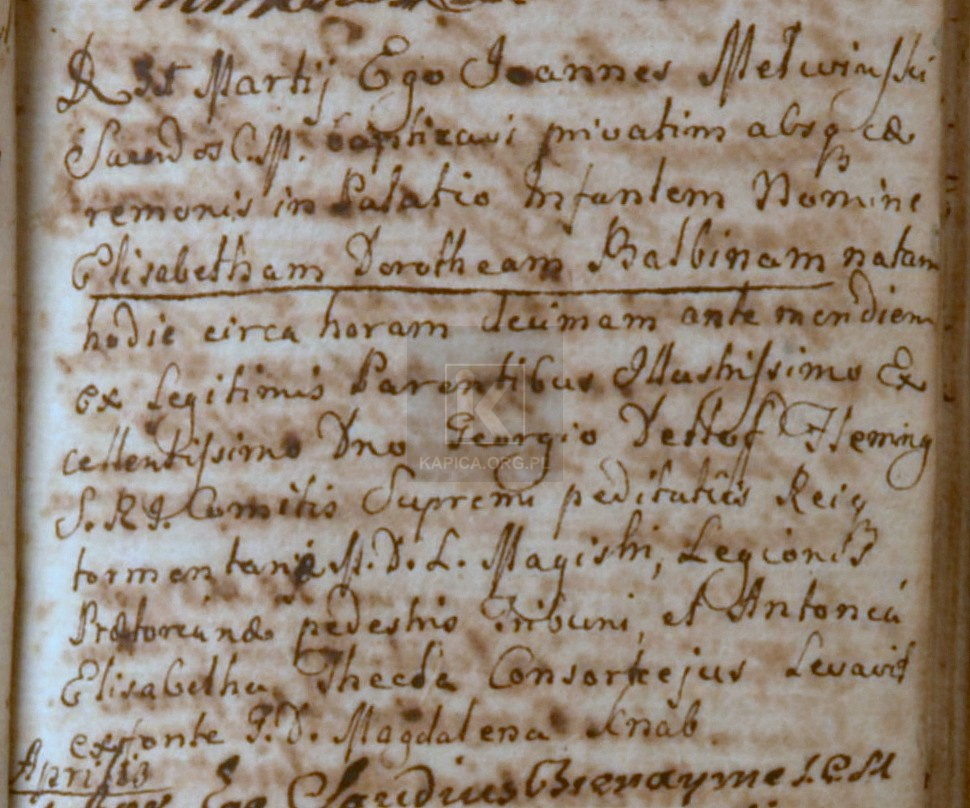 D 31 Martij Ego Joannes Metwinski
Sacerdos C.M. baptizavi privatim absq cæ
remoniis in Palatio Infantem Nomine
Elisabetham Dorotheam Balbinam natam
hodie circa horam decimam ante meridiem
ex Legitimis Parentibus Illustrissimo Ex
cellentissimo Dno Georgio Detlof Fleming
S.R.I. Comitis Supremi peditatûs Reiq
KAPICA.ORG.PL
tormentaria M.D.L. Magistri, Legionis
Prætorianæ pedestris Tribuni, et Antonia
Elisabetha Thecla Consorte ejus Levavit
ex fonte G.D. Magdalena Knab.
Aprilis
Ego Claudius Bienayme